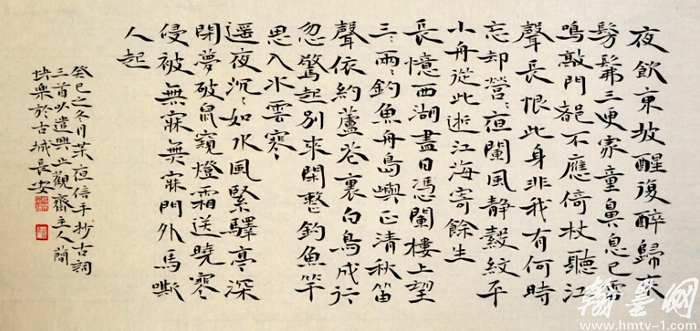 夜飲東坡醒復醉歸來
髣髴三更家童鼻息已雷
鳴敲門都不應倚杖聽江
聲長恨此身非我有何時
忘却營〻夜闌風静縠紋平
小舟從此逝江海寄餘生
長憶西湖盡日憑闌樓上望
三〻兩〻釣魚舟島嶼正清秋笛
聲依約蘆花裏白鳥成行
忽驚起別來閑整釣魚竿
思入水雲寒
遥夜沉〻如水風緊驛亭深
閉夢破鼠窺燈霜送曉寒
侵被無寐無寐門外馬嘶
人起
癸巳之冬月某夜信手抄古詞
三首以遣興止觀齋主人
樂於古城長安
翰墨网
www.hmtv-1.com